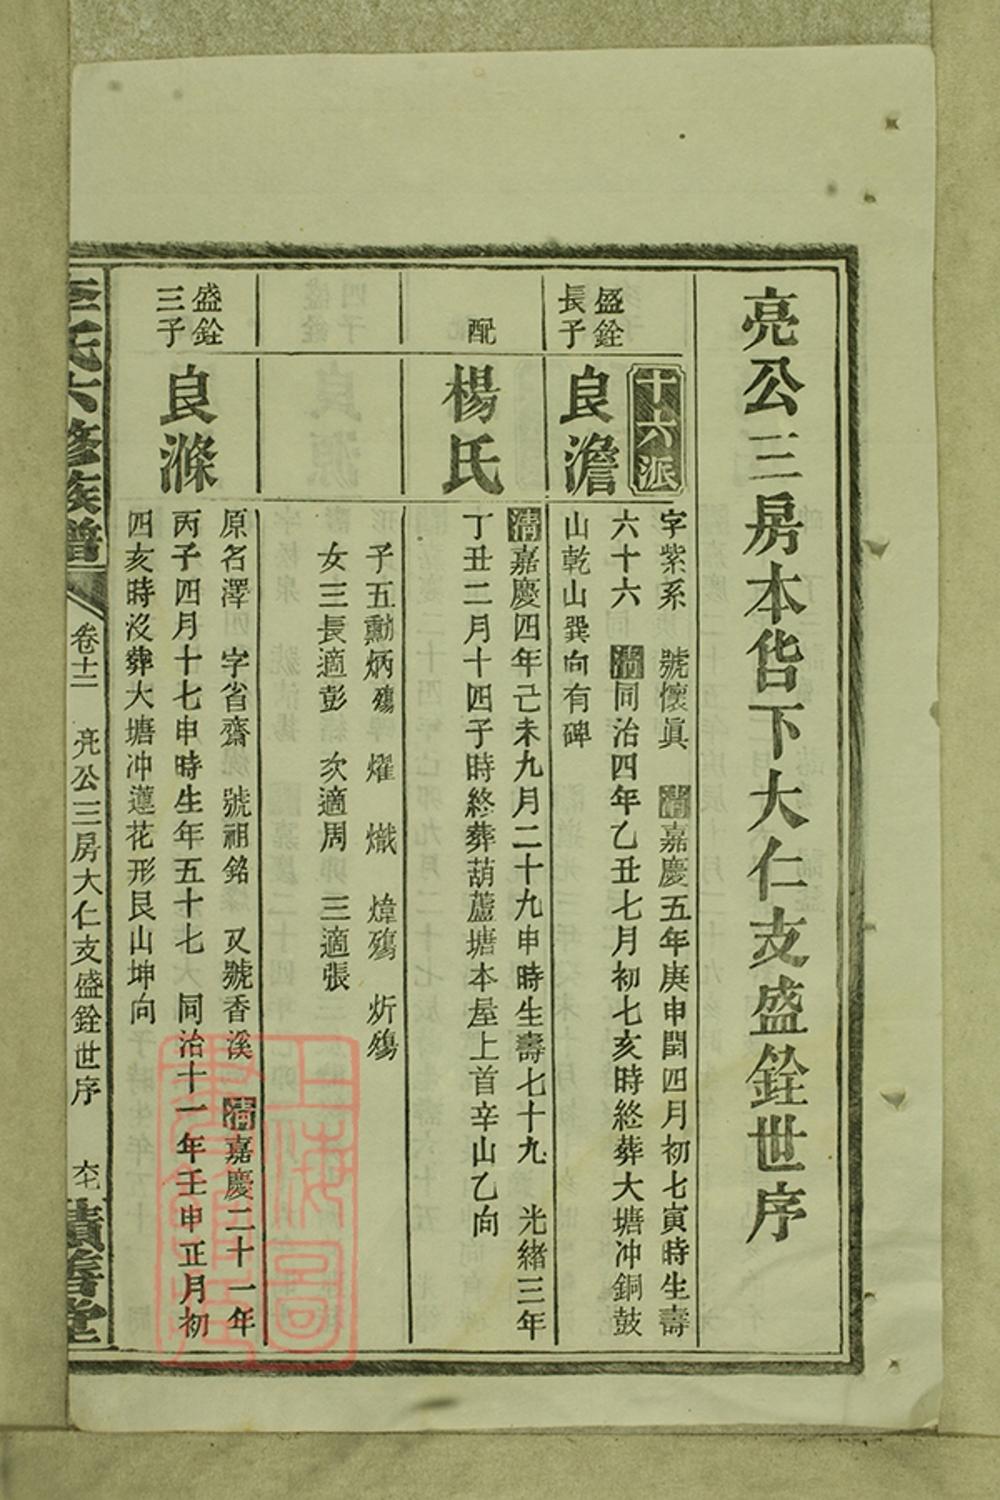 亮公三房本岱下大仁支盛銓世序
十六派
盛銓
長子
良澹
字紫系　號懷眞　清嘉慶五年庚申閏四月初七寅時生壽
六十六　清同治四年乙丑七月初七亥時終葬大塘冲銅鼓
山乾山巽向有碑
配
楊氏
清嘉慶四年己未九月二十九申時生壽七十九　光緒三年
丁丑二月十四子時終葬葫蘆塘本屋上首辛山乙向
子五勳炳殤　燿　熾　煒殤　炘殤
女三長適彭　次適周　三適張
盛銓
三子
良滌
原名澤　字省齋　號祖銘　又號香溪　清嘉慶二十一年
丙子四月十七申時生年五十七　同治十一年壬申正月初
四亥時沒葬大塘冲蓮花形艮山坤向
李氏六修族譜
卷十二　亮公三房大仁支盛銓世序
積善堂
上海圖
書館藏